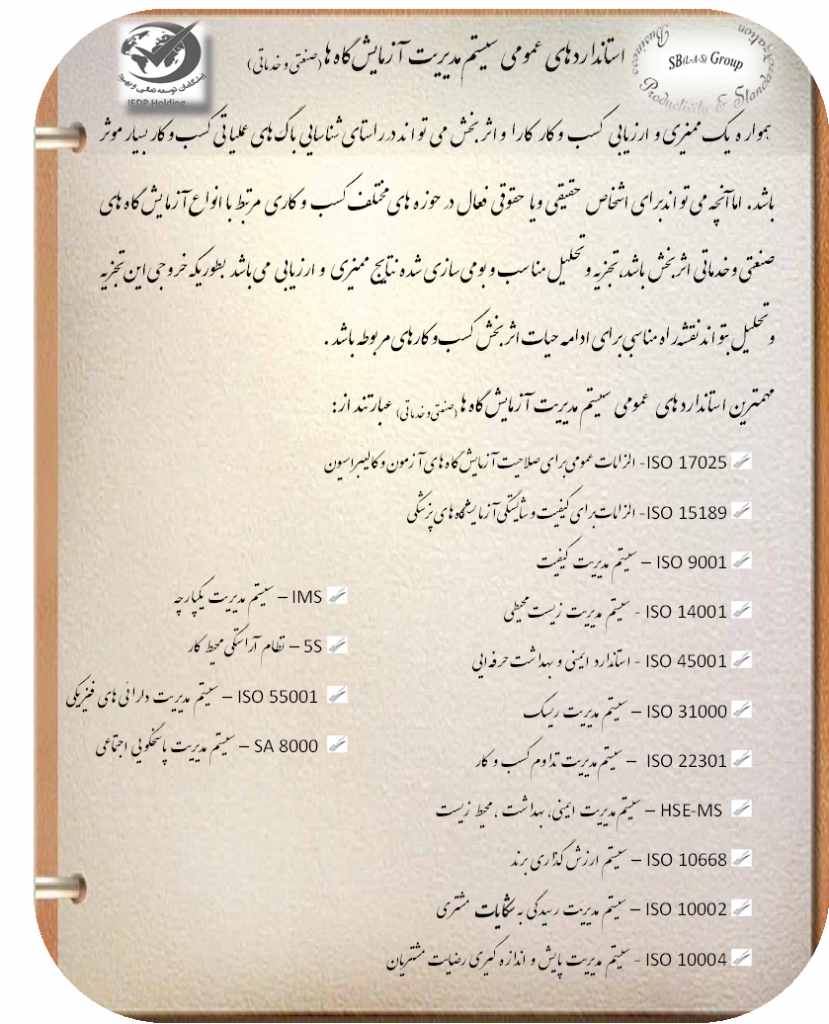 استانداردهای عمومی سیستم مدیریت آزمایش گاه ها (صنعتی و خدماتی)
SB(L.A.B) Group
Business
Productivity & Standardization
پیشگامان توسعه تعالی و بهبود
IEDP Holding
همواره یک ممیزی و ارزیابی کسب و کار کارا و اثربخش می تواند در راستای شناسایی باگ های عملیاتی کسب و کار بسیار موثر
باشد. اما آنچه می تواند برای اشخاص حقیقی ویا حقوقی فعال در حوزه های مختلف کسب و کاری مرتبط با انواع آزمایش گاه های
صنعتی و خدماتی اثربخش باشد، تجزیه و تحلیل مناسب و بومی سازی شده نتایج ممیزی و ارزیابی می باشد بطوریکه خروجی این تجزیه
و تحلیل بتواند نقشه راه مناسبی برای ادامه حیات اثربخش کسب و کارهای مربوطه باشد .
مهمترین استانداردهای عمومی سیستم مدیریت آزمایش گاه ها (صنعتی و خدماتی) عبارتند از :
ISO 17025- الزامات عمومی برای صلاحیت آزمایش گاه های آزمون و کالیبراسیون
ISO 15189- الزامات برای کیفیت و شایستگی آزمایشگاه های پزشکی
ISO 9001 – سیستم مدیریت کیفیت
ISO 14001 - سیستم مدیریت زیست محیطی
ISO 45001 - استاندارد ایمنی و بهداشت حرفه ایی
ISO 31000 – سیستم مدیریت ریسک
ISO 22301 – سیستم مدیریت تداوم کسب و کار
HSE-MS – سیستم مدیریت ایمنی، بهداشت ، محیط زیست
ISO 10668 – سیستم ارزش گذاری برند
ISO 10002 – سیستم مدیریت رسیدگی به شکایات مشتری
ISO 10004 - سیستم مدیریت پایش و اندازه گیری رضایت مشتریان
IMS – سیستم مدیریت یکپارچه
5S – نظام آراستگی محیط کار
ISO 55001 – سیستم مدیریت دارائی های فیزیکی
SA 8000 – سیستم مدیریت پاسخگویی اجتماعی